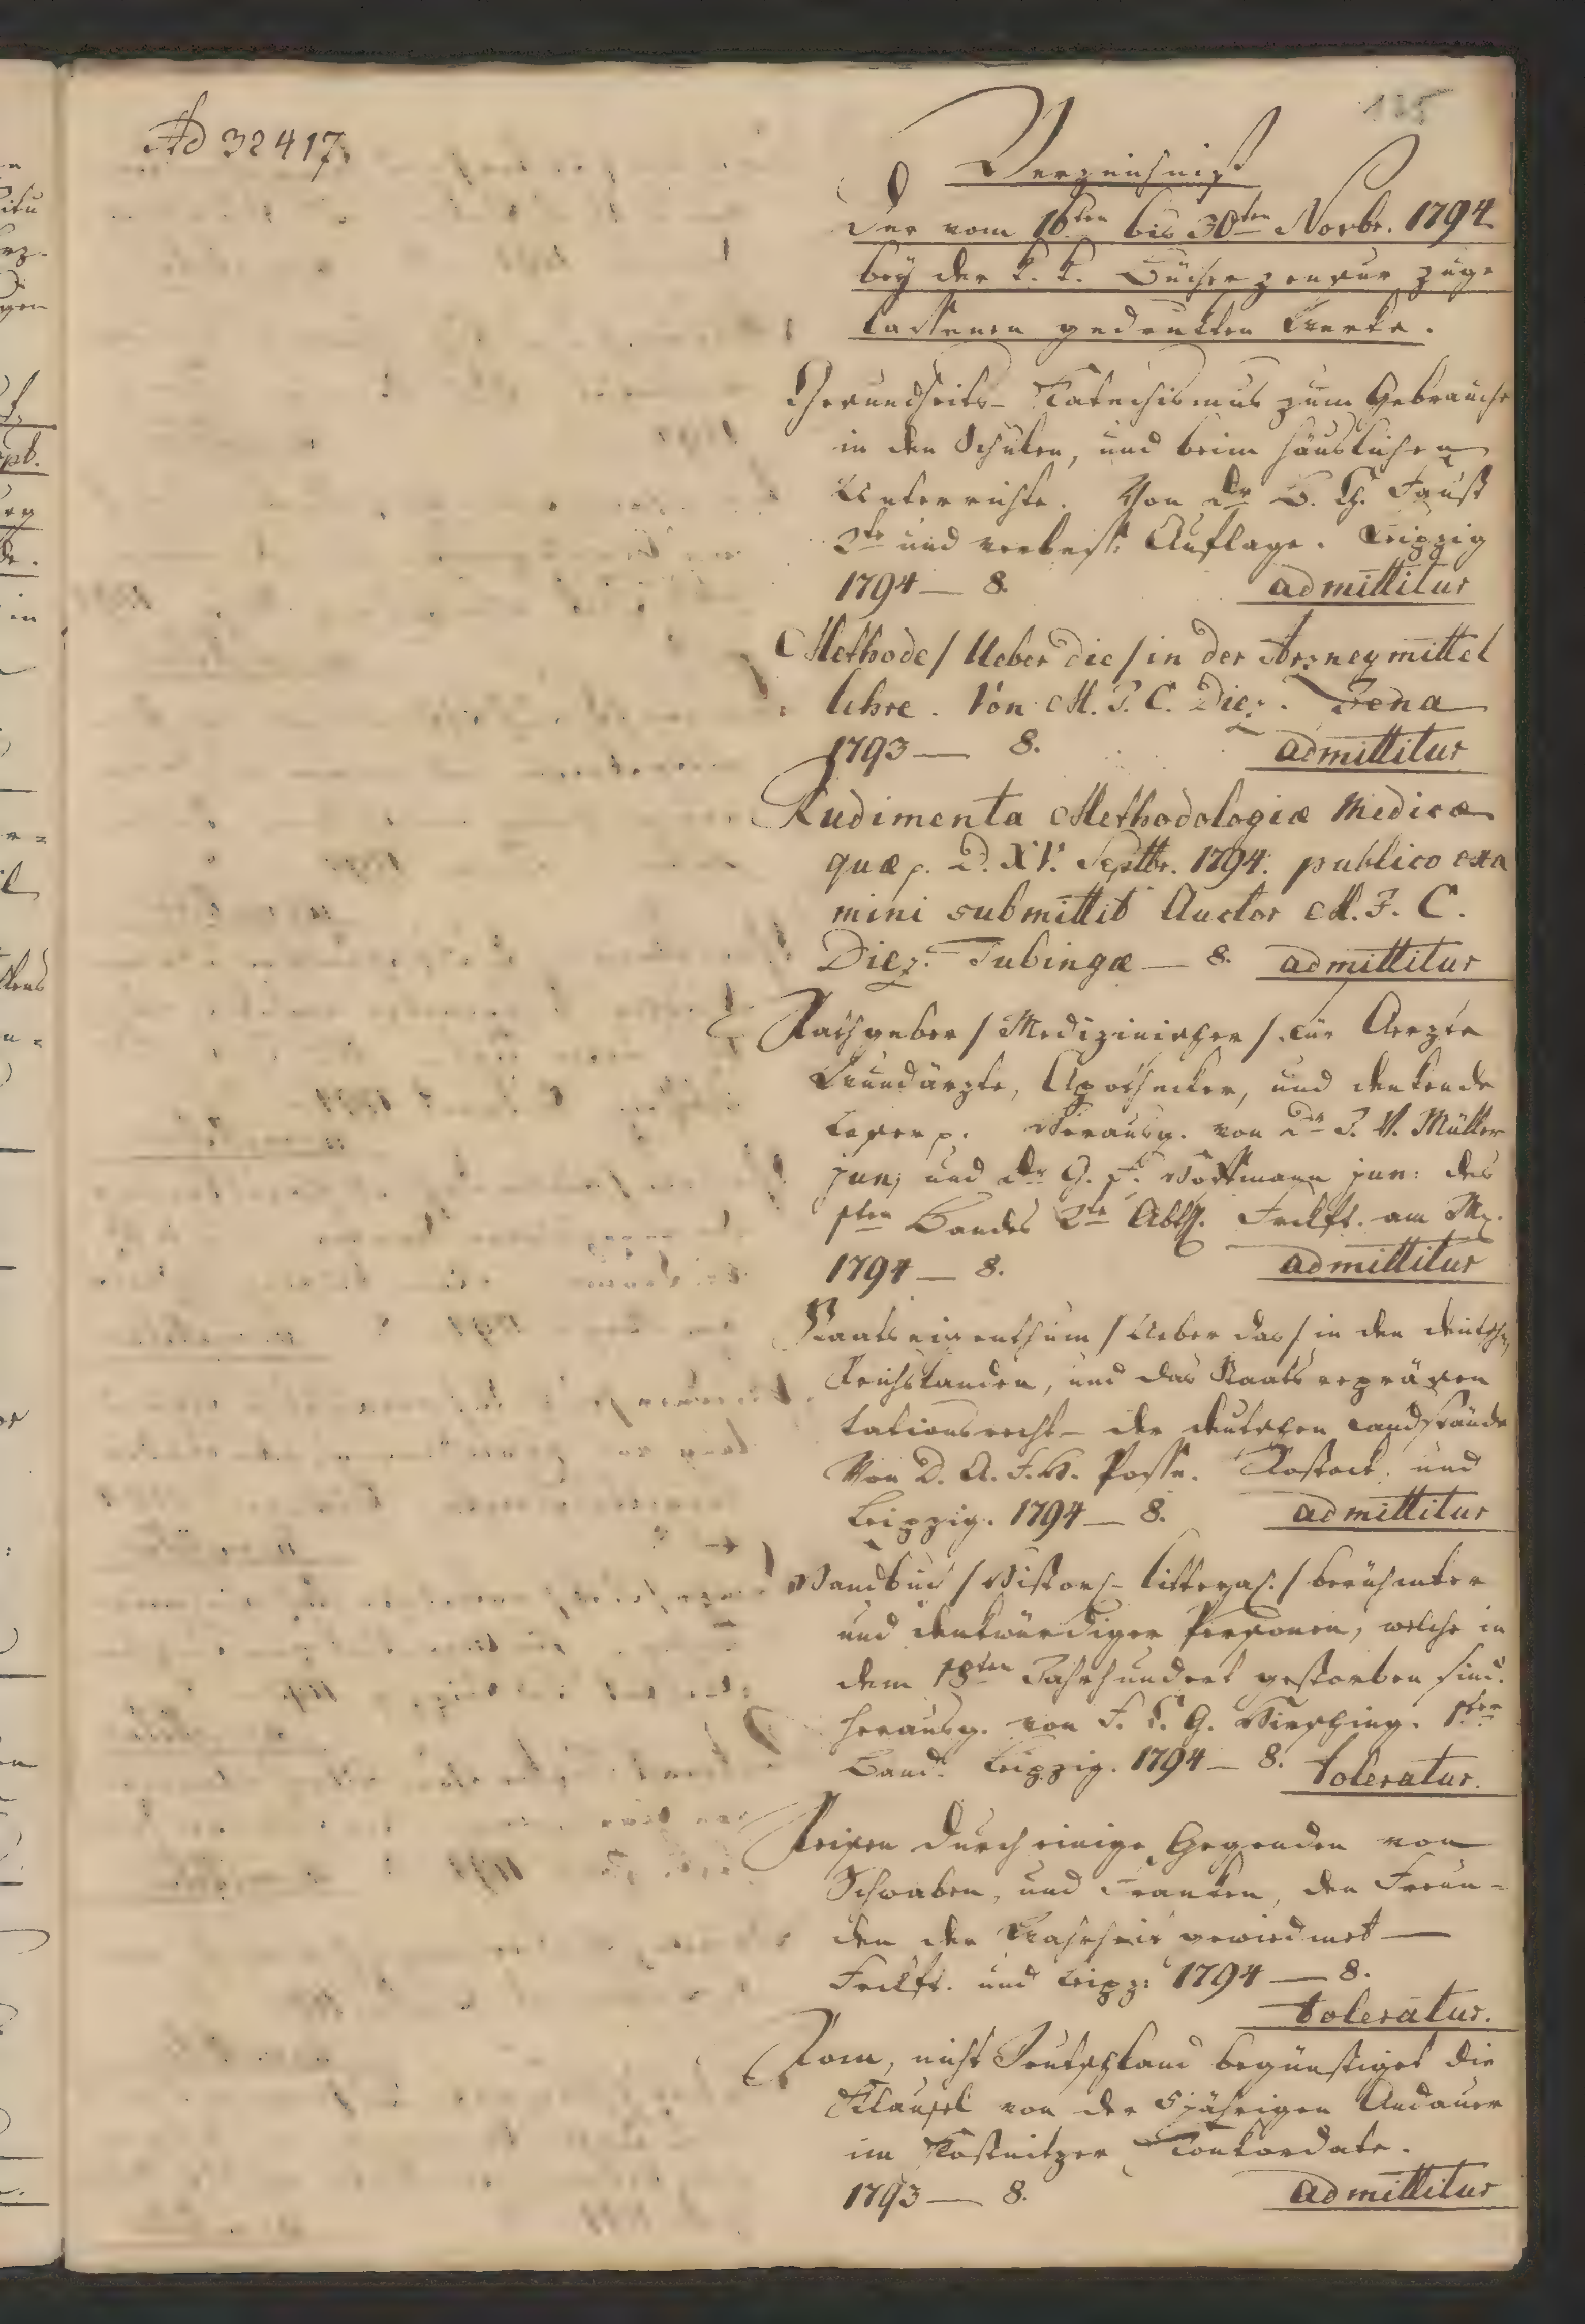 135
Ad 32417.
Verzeichniß
Der vom 16ten bis 30ten Novbr. 1794
bey der k. k. Bücherzensur zuge
lassenen gedruckten Werke.
Gesundheits- Katechismus zum Gebrauche
in den Schulen, und beim häuslichen
Unterrichte. Von Dr B. Ch. Faust
2te und verbeß: Auflage. Leipzig
1794 — 8. admittitur
Methode / Ueber die / in der Arzneymittel
lehre. Von M. F. C. Diez. Jena
1793 — 8. admittitur
Rudimenta Methodologiæ Medicæ
quæ p. D. XV. Septbr. 1794. publico exa
mini submittit Auctor M. F. C.
Diez. Tubingæ — 8. admittitur
Rathgeber / Medizinischer / für Aerzte
Wundärzte, Apothecker, und denkende
Leser p. Herausg. von Dr J. V. Müller
jun; und Dr G. F. Hoffmann jun: des
1ten Bandes 2te Abth. Frckft. am M.
1794 — 8. admittitur
Staatseigenthum / Ueber das / in den deutschen
Reichslanden, und das Staatsrepräsen
tationsrecht – der deutschen Landstände
Von D. A. F. H. Posse. Rostock und
Leipzig. 1794 — 8. admittitur
Handbuch / Histor- litterar. / berühmter
und denkwürdiger Personen, welche in
dem 18ten Jahrhundert gestorben sind.
herausg. von F. K. G. Hirsching. 1ter
Band. Leipzig. 1794 — 8. toleratur.
Reisen durch einige Gegenden von
Schwaben, und Franken, den Freun=
den der Wahrheit gewiedmet —
Frckft. und Leipz: 1794 — 8.
toleratur.
Rom, nicht Deutschland begünstiget die
Klausel von der 5jährigen Andauer
im Kostnitzer Konkordate.
1793 — 8. admittitur